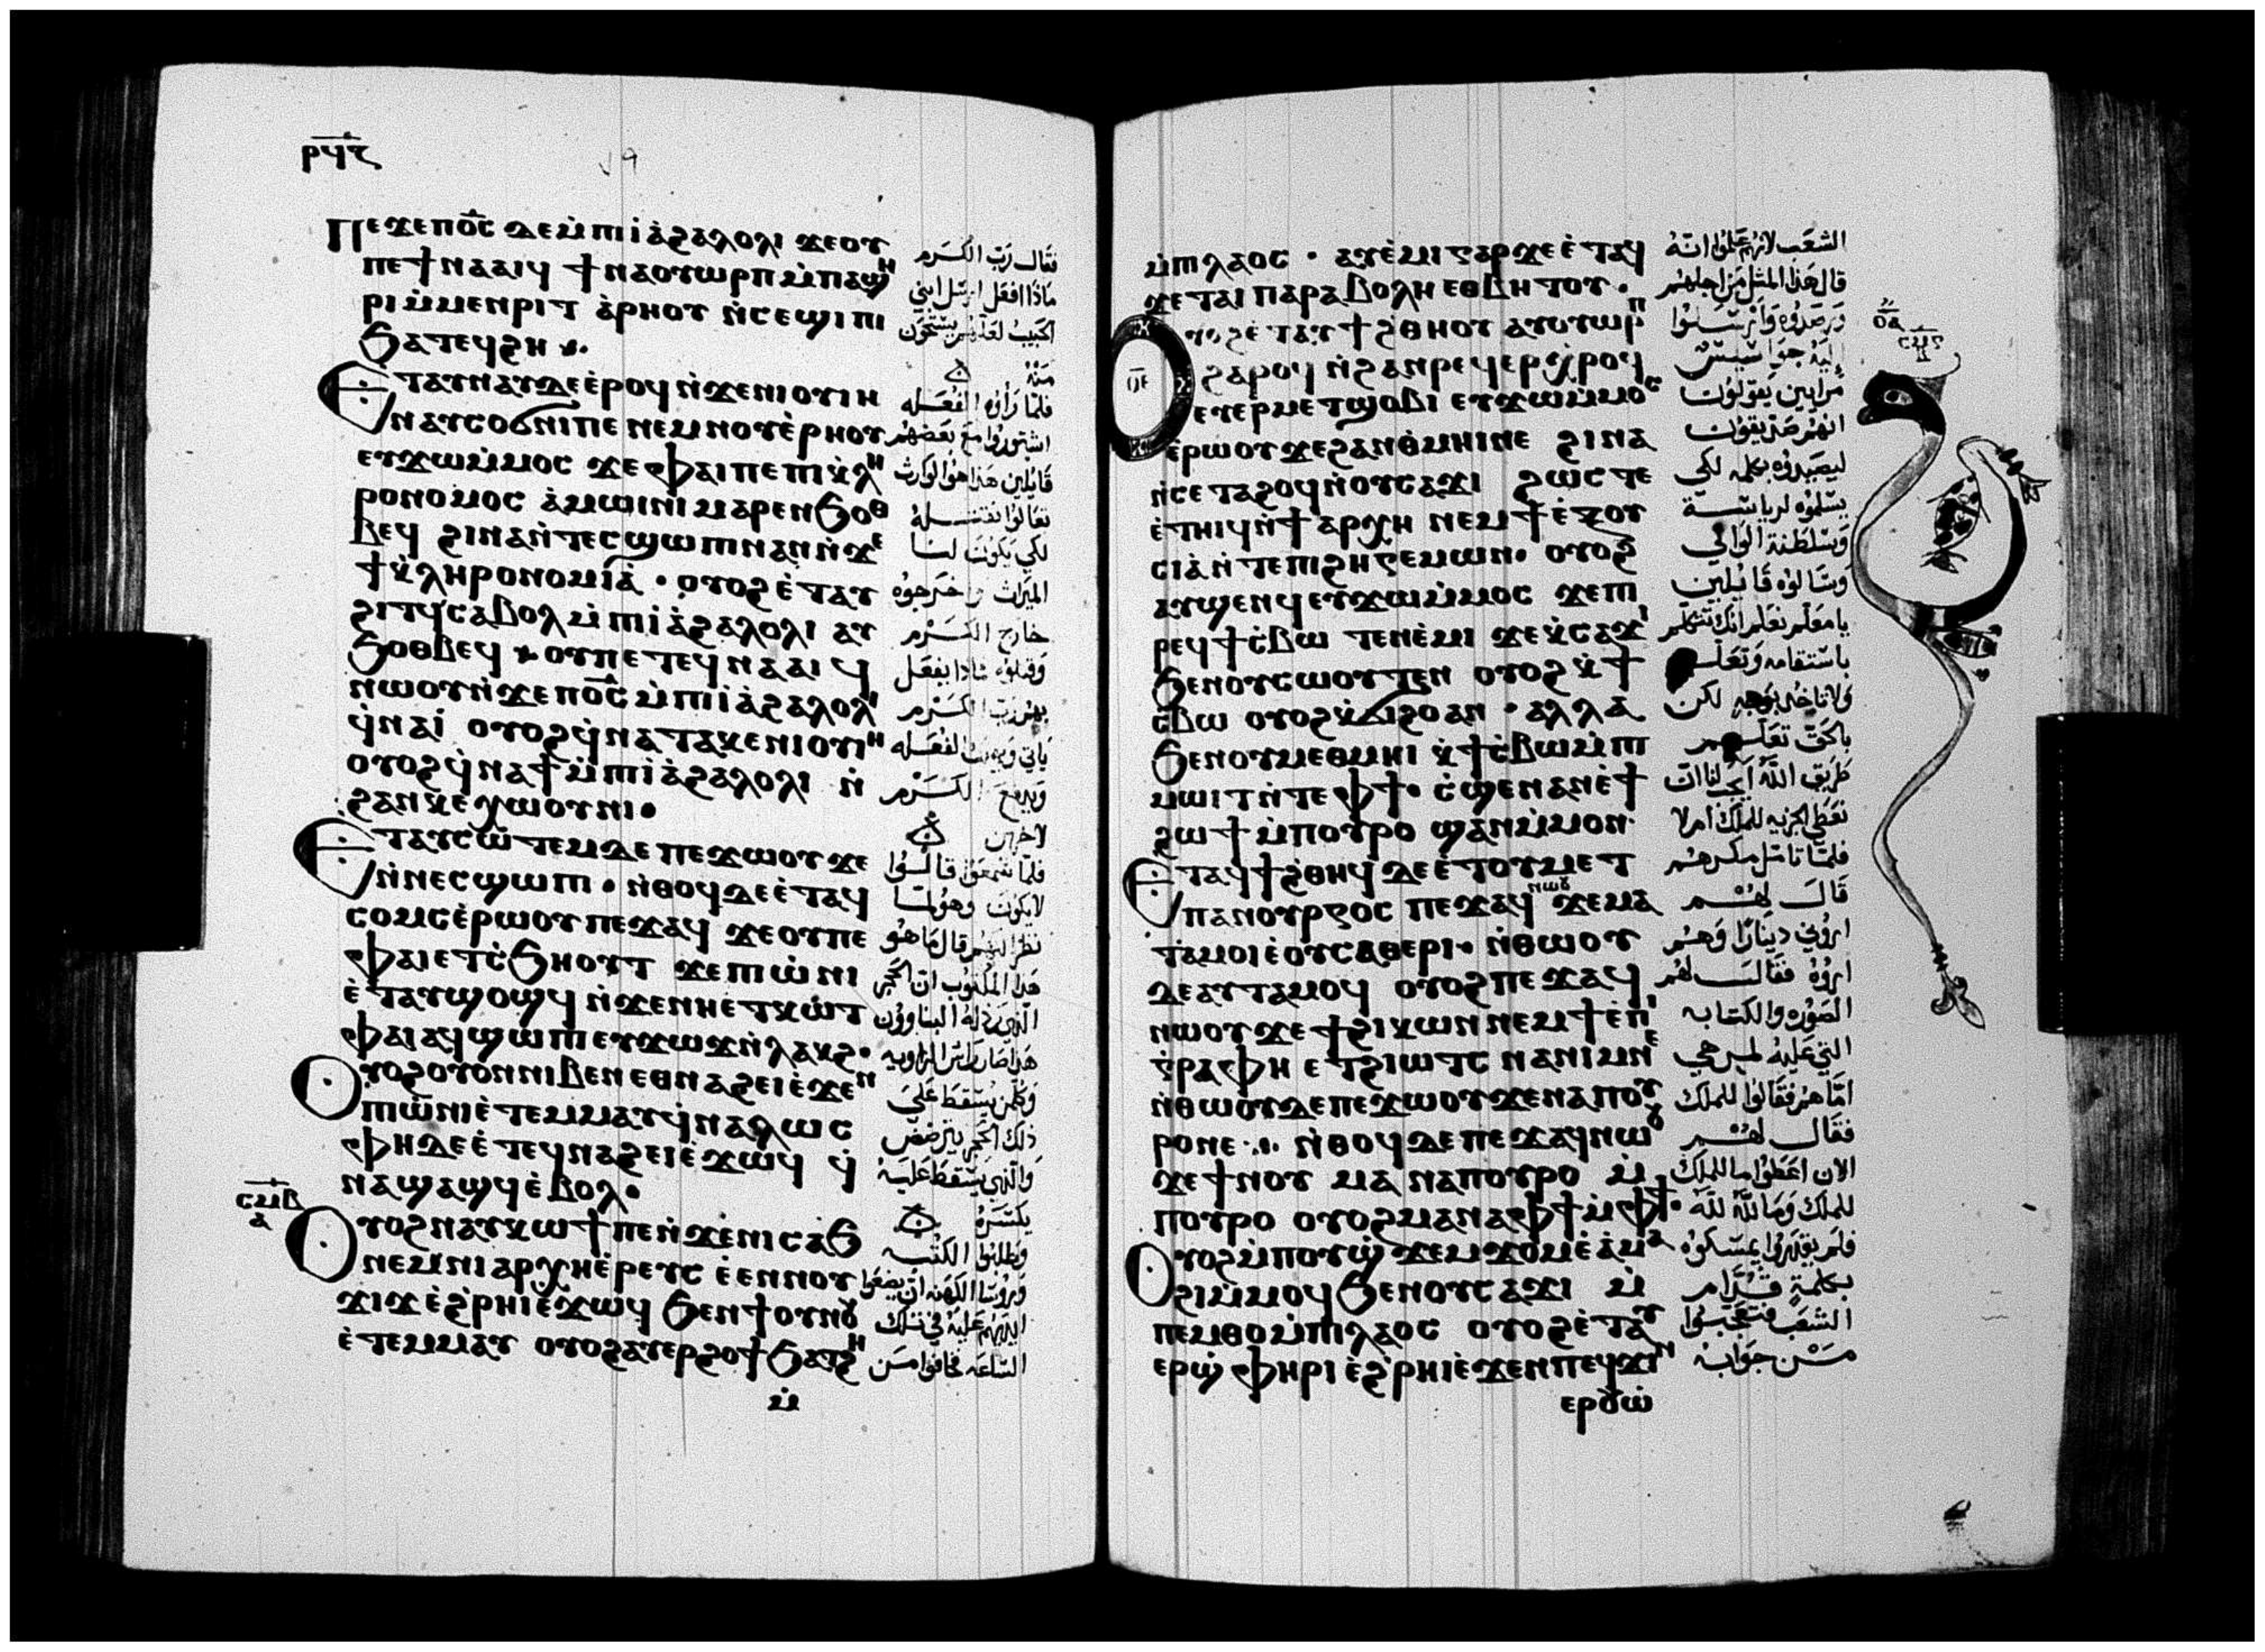 ⲣϥⲋ
ⲡⲉϫⲉⲡⲟ̅ⲥ̅ ⲇⲉⲙ̀ⲡⲓⲁ̀ϩⲁⲗⲟⲗⲓ ϫⲉⲟⲩ
ⲡⲉϯⲛⲁⲁⲓϥ ϯⲛⲁⲟⲩⲱⲣⲡ ⲙ̀ⲡⲁϣⲏ
ⲣⲓ ⲙ̀ⲙⲉⲛⲣⲓⲧ ⲁ̀ⲣⲏⲟⲩ ⲛ̀ⲥⲉϣⲓⲡⲓ
ϧⲁⲧⲉϥϩⲏ
ⲉⲧⲁⲩⲛⲁⲩⲇⲉ ⲉ̀ⲣⲟϥ ⲛ̀ϫⲉⲛⲓⲟⲩⲓⲏ
ⲛⲁⲩⲥⲟϭⲛⲓⲡⲉ ⲛⲉⲙⲛⲟⲩⲉ̀ⲣⲏⲟⲩ
ⲉⲩϫⲱⲙ̀ⲙⲟⲥ ϫⲉ ⲫⲁⲓⲡⲉ ⲡⲓⲭ̀ⲗⲏ
ⲣⲟⲛⲟⲙⲟⲥ ⲁ̀ⲙⲱⲓⲛⲓ ⲙⲁⲣⲉⲛϧⲟⲑ
ⲃⲉϥ ϩⲓⲛⲁⲛ̀ⲧⲉⲥϣⲱⲡⲓ ⲛⲁⲛ ⲛ̀ϫⲉ
ϯⲕ̀ⲗⲏⲣⲟⲛⲟⲙⲓⲁ̀ · ⲟⲩⲟϩ ⲉ̀ⲧⲁⲩ
ϩⲓⲧϥ ⲥⲁⲃⲟⲗ ⲙ̀ⲡⲓⲁ̀ϩⲁⲗⲟⲗⲓ ⲁⲩ
ϧⲟⲑⲃⲉϥ ⲟⲩⲡⲉⲧⲉϥⲛⲁⲁⲓϥ
ⲛⲱⲟⲩ ⲛ̀ϫⲉ ⲡⲟ̅ⲥ̅ ⲙ̀ⲡⲓⲁ̀ϩⲁⲗⲟⲗⲓ
ϥ̀ⲛⲁⲓ̀ ⲟⲩⲟϩ ϥ̀ⲛⲁⲧⲁⲕⲉⲛⲓⲟⲩⲓⲏ
ⲟⲩⲟϩ ϥ̀ⲛⲁϯ ⲙ̀ⲡⲓⲁ̀ϩⲁⲗⲟⲗⲓ ⲛ̀
ϩⲁⲛⲕⲉⲭⲱⲟⲩⲛⲓ ·
ⲉⲧⲁⲩⲥⲱⲧⲉⲙ ⲇⲉ ⲡⲉϫⲱⲟⲩ ϫⲉ
ⲛ̀ⲛⲉⲥϣⲱⲡⲓ · ⲛ̀ⲑⲟϥ ⲇⲉ ⲉ̀ⲧⲁϥ
ⲥⲟⲙⲥ ⲉ̀ⲣⲱⲟⲩ ⲡⲉϫⲁϥ ϫⲉ ⲟⲩⲡⲉ
ⲫⲁⲓ ⲉⲧⲥ̀ϧⲏⲟⲩⲧ ϫⲉ ⲡⲓⲱ̀ⲛⲓ
ⲉ̀ⲧⲁⲩϣⲟϣϥ ⲛ̀ϫⲉⲛⲏⲉⲧⲕⲱⲧ
ⲫⲁⲓ ⲁϥϣⲱⲡⲓ ⲉⲩϫⲱϫ ⲛ̀ⲗⲁⲕϩ ·
ⲟⲩⲟϩ ⲟⲩⲟⲛ ⲛⲓⲃⲉⲛ ⲉⲑⲛⲁϩⲉⲓ ⲉ̀ϫⲉⲛ
ⲡⲓⲱⲛⲓ ⲉ̀ⲧⲉⲙⲙⲁⲩ ϥ̀ⲛⲁⲗⲱⲥ
ⲫⲏ ⲇⲉ ⲉ̀ⲧⲉϥⲛⲁϩⲉⲓ ⲉ̀ϫⲱϥ ϥ̀
ⲛⲁϣⲁϣϥ ⲉ̀ⲃⲟⲗ ·
ⲥⲙⲃ
ⲁ
ⲟⲩⲟϩ ⲛⲁⲩⲕⲱϯ ⲡⲉ ⲛ̀ϫⲉⲛⲓⲥⲁϧ
ⲛⲉⲙ ⲛⲓⲁⲣⲭⲏⲉ̀ⲣⲉⲩⲥ ⲉ̀ⲉⲛⲛⲟⲩ
ϫⲓϫ ⲉ̀ϩ̀ⲣⲏⲓ ⲉ̀ϫⲱϥ ϧⲉⲛϯⲟⲩⲛⲟⲩ
ⲉ̀ⲧⲉⲙⲙⲁⲩ ⲟⲩⲟϩ ⲁⲩⲉⲣϩⲟϯ ϧⲁⲧϩⲏ
ⲙ̀
فقال رب الكرم
ماذا افعل ارسل ابني
الحبيب لعلهم يستحون
منه
فلما راوه الفعله
اشتوروا مع بعضهم
قايلين هذا هو الوارث
تعالوا نقتله
لكي يكون لنا
الميراث واخرجوه
خارج الكرم
وقتلوه ماذا يفعل
بهم رب الكرم
ياتي ويهلك الفعله
ويدفع الكرم
لاخرين
فلما سمعوا قالوا
لا يكون وهو لما
نظر اليهم قال ما هو
هذا المكتوب ان الحجر
الذي رذله البناوون
هذا صار راس الزاويه
وكلمن يسقط على
ذلك الحجر يترضض
والذي يسقط عليه
يكسره
وطلبوا الكتبه
وروسا الكهنه ان يضعوا
ايديهم عليه في تلك
الساعه فخافوا من
ⲙ̀ⲡⲓⲗⲁⲟⲥ · ⲁⲩⲉ̀ⲙⲓ ⲅⲁⲣ ϫⲉ ⲉ̀ⲧⲁϥ
ϫⲉ ⲧⲁⲓⲡⲁⲣⲁⲃⲟⲗⲏ ⲉⲑⲃⲏⲧⲟⲩ ·
ⲟⲩⲟϩ ⲉ̀ⲧⲁⲩϯϩ̀ⲑⲏⲟⲩ ⲁⲩⲟⲩⲱⲣⲡ
ϩⲁⲣⲟϥ ⲛ̀ϩⲁⲛⲣⲉϥⲉⲣⲭ̀ⲣⲟϥ
ⲉⲩⲉⲣⲙⲉⲧϣⲟⲃⲓ ⲉⲩϫⲱⲙ̀ⲙⲟⲥ
ⲉ̀ⲣⲱⲟⲩ ϫⲉ ϩⲁⲛⲑ̀ⲙⲏⲓ ⲛⲉ ϩⲓⲛⲁ
ⲛ̀ⲥⲉⲧⲁϩⲟϥ ⲛ̀ⲟⲩⲥⲁϫⲓ ϩⲱⲥⲧⲉ
ⲉ̀ⲧⲏⲓϥ ⲛ̀ϯⲁⲣⲭⲏ ⲛⲉⲙ ϯⲉ̀ⲝⲟⲩ
ⲥⲓⲁ̀ ⲛ̀ⲧⲉ ⲡⲓϩⲏⲅⲉⲙⲱⲛ · ⲟⲩⲟϩ
ⲁⲩϣⲉⲛϥ ⲉⲩϫⲱⲙ̀ⲙⲟⲥ ϫⲉ ⲡⲓ
ⲣⲉϥϯⲥ̀ⲃⲱ ⲧⲉⲛⲉ̀ⲙⲓ ϫⲉ ⲕ̀ⲥⲁϫⲓ
ϧⲉⲛⲟⲩⲥⲱⲟⲩⲧⲉⲛ ⲟⲩⲟϩ ⲕ̀ϯ
ⲥ̀ⲃⲱ ⲟⲩⲟϩ ⲕ̀ϭⲓϩⲟ ⲁⲛ · ⲁⲗⲗⲁ
ϧⲉⲛⲟⲩⲙⲉⲑⲙⲏⲓ ⲕ̀ϯⲥ̀ⲃⲱ ⲙ̀ⲡⲓ
ⲙⲱⲓⲧ ⲛ̀ⲧⲉ ⲫϯ · ⲥ̀ϣⲉ ⲛⲁⲛ ⲉ̀ϯ
ϩⲱϯ ⲙ̀ⲡⲟⲩⲣⲟ ϣⲁⲛ ⲙ̀ⲙⲟⲛ
ⲉⲧⲁϥϯϩ̀ⲑⲏϥ ⲇⲉ ⲉ̀ⲧⲟⲩⲙⲉⲧ
ⲡⲁⲛⲟⲩⲣⲅⲟⲥ ⲡⲉϫⲁϥ ⲛⲱⲟⲩ ϫⲉ ⲙⲁ
ⲧⲁⲙⲟⲓ ⲉ̀ⲟⲩⲥⲁⲑⲉⲣⲓ · ⲛ̀ⲑⲱⲟⲩ
ⲇⲉ ⲁⲩⲧⲁⲙⲟϥ ⲟⲩⲟϩ ⲡⲉϫⲁϥ
ⲛⲱⲟⲩ ϫⲉ ϯϩⲓⲕⲱⲛ ⲛⲉⲙ ϯⲉ̀ⲡⲓ
ⲅⲣⲁⲫⲏ ⲉⲧϩⲓⲱⲧⲥ ⲛⲁⲛⲓⲙ ⲛⲉ
ⲛ̀ⲑⲱⲟⲩ ⲇⲉ ⲡⲉϫⲱⲟⲩ ϫⲉ ⲛⲁⲡⲟⲩ
ⲣⲟ ⲛⲉ ⲛ̀ⲑⲟϥ ⲇⲉ ⲡⲉϫⲁϥ ⲛⲱⲟⲩ
ϫⲉ ϯⲛⲟⲩ ⲙⲁ ⲛⲁⲡⲟⲩⲣⲟ ⲙ̀
ⲡⲟⲩⲣⲟ ⲟⲩⲟϩ ⲙⲁ ⲛⲁⲫϯ ⲙ̀ⲫϯ ·
ⲟⲩⲟϩ ⲙ̀ⲡⲟⲩϣ̀ϫⲉⲙϫⲟⲙ ⲉ̀ⲁ̀ⲙⲁ
ϩⲓ ⲙ̀ⲙⲟϥ ϧⲉⲛⲟⲩⲥⲁϫⲓ ⲙ̀
ⲡⲉⲙⲑⲟ ⲙ̀ⲡⲓⲗⲁⲟⲥ ⲟⲩⲟϩ ⲉ̀ⲧⲁⲩ
ⲉⲣϣ̀ⲫⲏⲣⲓ ⲉ̀ϩ̀ⲣⲏⲓ ⲉ̀ϫⲉⲛ ⲡⲉϥϫⲓⲛ
ⲉⲣⲟⲩⲱ̀
ⲟⲉ
ⲟⲁ
ⲥⲙⲅ
الشعب لانهم علموا انه
قال هذا المثل من اجلهم
ورصدوه وارسلوا
اليه جواسيس
مرايين يقولون
انهم صديقون
ليصيدوه بكلمه لكي
يسلموه لرياسة
وسلطنة الوالي
وسالوه قايلين
يا معلم نعلم انك تتكلم
باستقامه وتعلم
ولا تاخذ بوجه لكن
بالحق تعلم
طريق الله ايجب لنا ان
نعطي الجزيه للملك ام لا
فلما تامل مكرهم
قال لهم
اروني دينارا وهم
اروه فقال لهم
الصوره والكتابه
التي عليه لمن هي
اما هم فقالوا للملك
فقال لهم
الان اعطوا ما للملك
للملك وما لله لله
فلم يقدروا يمسكوه
بكلمة قدام
الشعب فتعجبوا
من جوابه